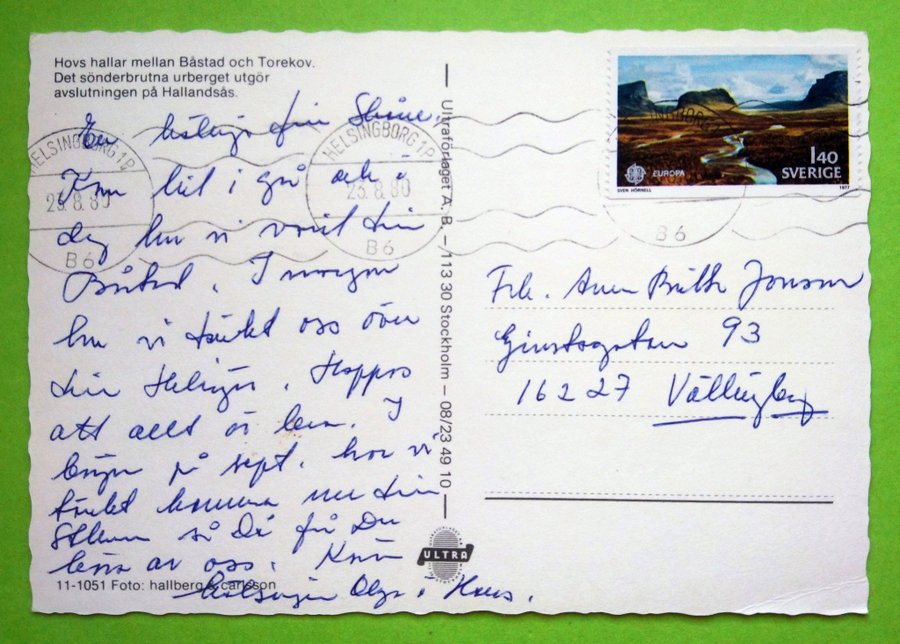 Hovs hallar mellan Båstad och Torekov.
Det sönderbrutna urberget utgör
avslutningen på Hallandsås.
En från Skåne.
Kom hit i går och i
dag har vi varit i
Båstad. I morgon
har vi tänkt oss över
till Helsingör. Hoppas
att allt är bra. I
början på sept. har vi
tänkt komma
så Du
höra av oss.
Olga o Hans.
11-1051 Foto: hallberg & carlsson
Ultraförlaget A.B. – 113 30 Stockholm – 08/23 49 10
ULTRA
HELSINGBORG 1P
25.8.80
B6
HELSINGBORG 1P
25.8.80
B6
B6
EUROPA
1.40
SVERIGE
SVEN HÖRNELL
1977
Frk. Ann Britth Jonsson
93
16227 Vällingby